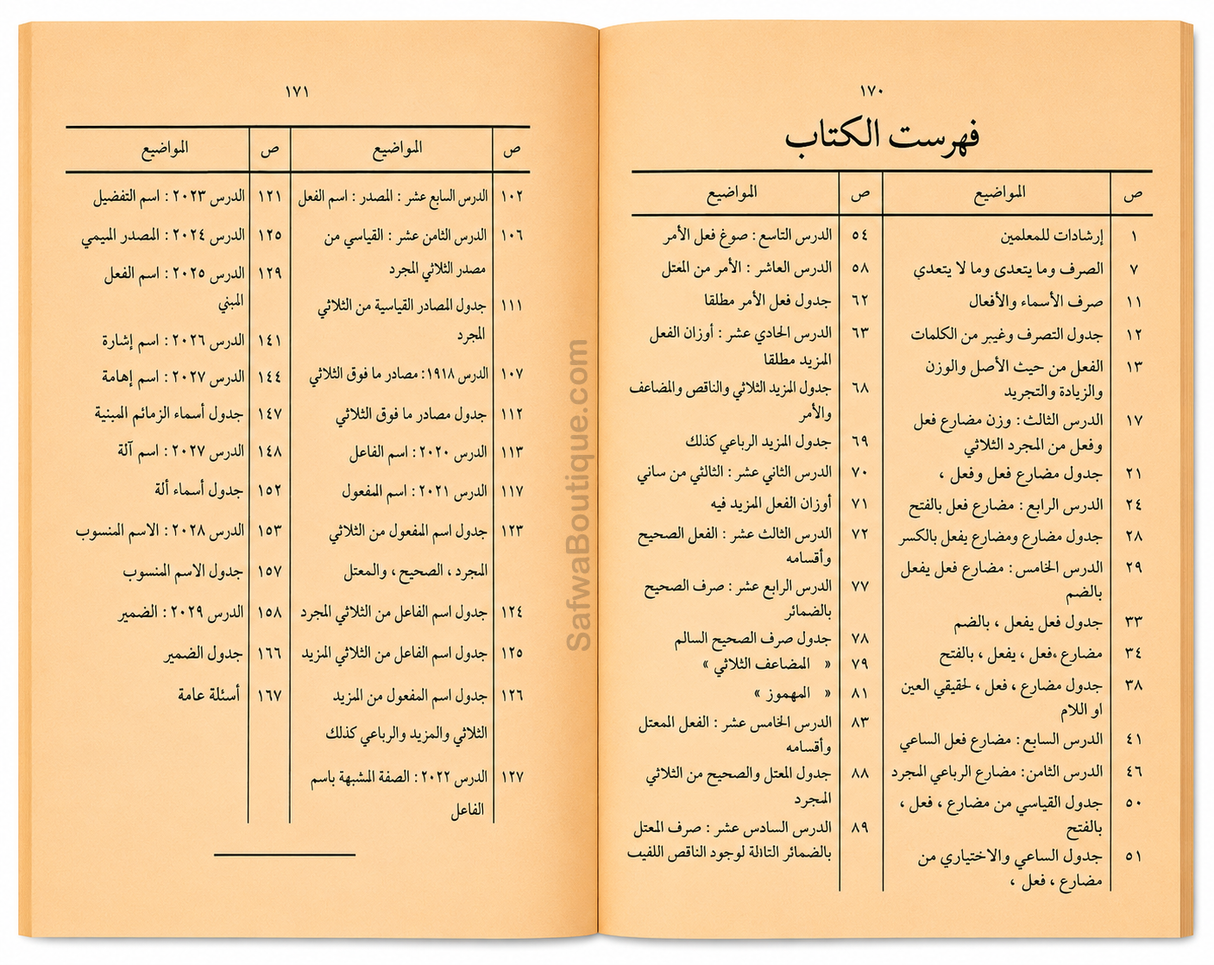 ١٧٠
فهرست الكتاب
ص المواضيع ص المواضيع
١ إرشادات للمعلمين
٧ الصرف وما يتعدى وما لا يتعدي
١١ صرف الأسماء والأفعال
١٢ جدول التصرف وغيبر من الكلمات
١٣ الفعل من حيث الأصل والوزن
والزيادة والتجريد
١٧ الدرس الثالث : وزن مضارع فعل
وفعل من المجرد الثلاثي
٢١ جدول مضارع فعل وفعل ،
٢٤ الدرس الرابع : مضارع فعل بالفتح
٢٨ جدول مضارع ومضارع يفعل بالكسر
٢٩ الدرس الخامس: مضارع فعل يفعل
بالضم
٣٣ جدول فعل يفعل ، بالضم
٣٤ مضارع ،فعل ، يفعل ، بالفتح
٣٨ جدول مضارع ، فعل ، لحقيقي العين
او اللام
٤١ الدرس السابع : مضارع فعل الساعي
٤٦ الدرس الثامن: مضارع الرباعي المجرد
٥٠ جدول القياسي من مضارع ، فعل ،
بالفتح
٥١ جدول الساعي والاختياري من
مضارع ، فعل ،
٥٤ الدرس التاسع : صوغ فعل الأمر
٥٨ الدرس العاشر : الأمر من المعتل
٦٢ جدول فعل الأمر مطلقا
٦٣ الدرس الحادي عشر : أوزان الفعل
المزيد مطلقا
٦٨ جدول المزيد الثلاثي والناقص والمضاعف
والأمر
٦٩ جدول المزيد الرباعي كذلك
٧٠ الدرس الثاني عشر : الثالثي من ساني
٧١ أوزان الفعل المزيد فيه
٧٢ الدرس الثالث عشر : الفعل الصحيح
وأقسامه
٧٧ الدرس الرابع عشر : صرف الصحيح
بالضمائر
٧٨ جدول صرف الصحيح السالم
٧٩ « المضاعف الثلاثي »
٨١ « المهموز »
٨٣ الدرس الخامس عشر : الفعل المعتل
وأقسامه
٨٨ جدول المعتل والصحيح من الثلاثي
المجرد
٨٩ الدرس السادس عشر : صرف المعتل
بالضمائر لوجود الناقص اللفيب
١٧١
ص المواضيع ص المواضيع
١٠٢ الدرس السابع عشر : المصدر : اسم الفعل
١٠٦ الدرس الثامن عشر : القياسي من
مصدر الثلاثي المجرد
١١١ جدول المصادر القياسية من الثلاثي
المجرد
١٠٧ الدرس ١٩١٨: مصادر ما فوق الثلاثي
١١٢ جدول مصادر ما فوق الثلاثي
١١٣ الدرس ٢٠٢٠ : اسم الفاعل
١١٧ الدرس ٢٠٢١ : اسم المفعول
١٢٣ جدول اسم المفعول من الثلاثي
المجرد ، الصحيح ، والمعتل
١٢٤ جدول اسم الفاعل من الثلاثي المجرد
١٢٥ جدول اسم الفاعل من الثلاثي المزيد
١٢٦ جدول اسم المفعول من المزيد
الثلاثي والمزيد والرباعي كذلك
١٢٧ الدرس ٢٠٢٢ : الصفة المشبهة باسم
الفاعل
١٢١ الدرس ٢٠٢٣ : اسم التفضيل
١٢٥ الدرس ٢٠٢٤ : المصدر الميمي
١٢٩ الدرس ٢٠٢٥ : اسم الفعل
المبني
١٤١ الدرس ٢٠٢٦ : اسم إشارة
١٤٤ الدرس ٢٠٢٧ : اسم إهامة
١٤٧ جدول أسماء الزمائم المبنية
١٤٨ الدرس ٢٠٢٧ : اسم آلة
١٥٢ جدول أسماء ألة
١٥٣ الدرس ٢٠٢٨ : الاسم المنسوب
١٥٧ جدول الاسم المنسوب
١٥٨ الدرس ٢٠٢٩ : الضمير
١٦٦ جدول الضمير
١٦٧ أسئلة عامة
SafwaBoutique.com